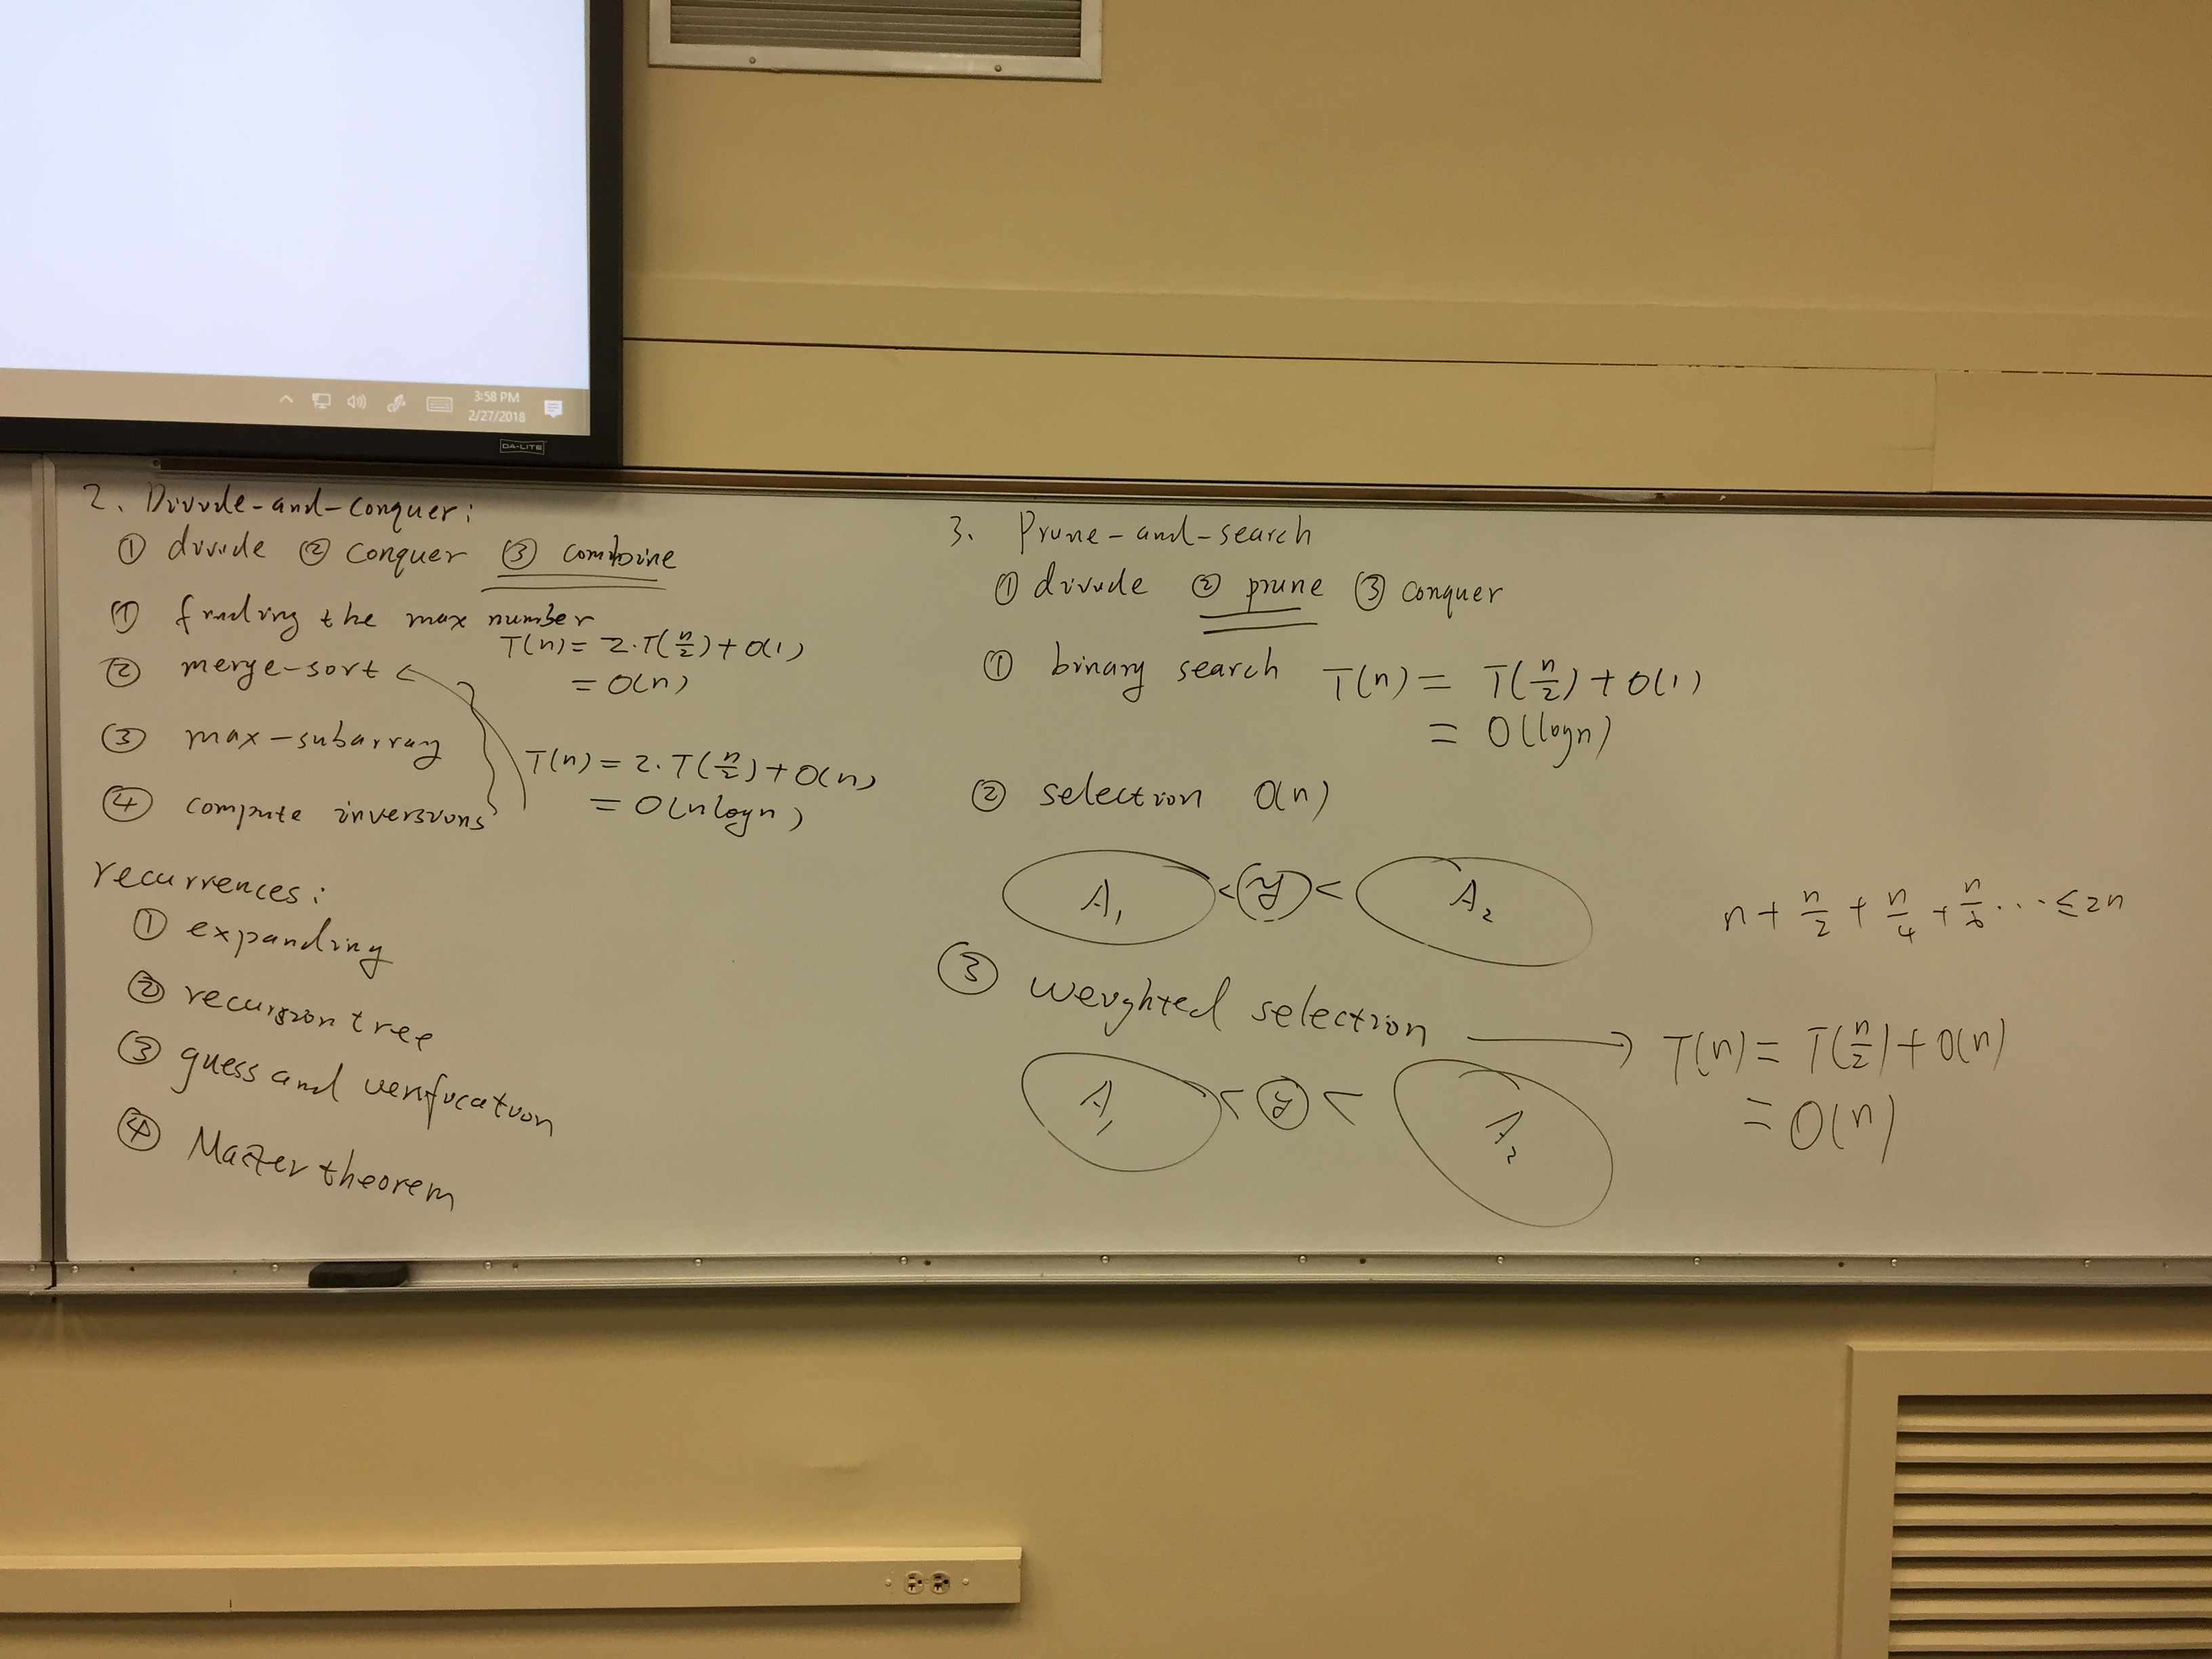 3:58 PM
2/27/2018
DA-LITE
2. Divide-and-conquer:
① divide ② conquer ③ combine
① finding the max number
T(n) = 2·T(n/2) + O(1)
= O(n)
② merge-sort
③ max-subarray
T(n) = 2·T(n/2) + O(n)
= O(n log n)
④ compute inversions
recurrences:
① expanding
② recursion tree
③ guess and verification
④ Master theorem
3. Prune-and-search
① divide ② prune ③ conquer
① binary search T(n) = T(n/2) + O(1)
= O(log n)
② selection O(n)
A₁ < y < A₂
n + n/2 + n/4 + n/8 ... ≤ 2n
③ weighted selection → T(n) = T(n/2) + O(n)
= O(n)
A₁ < y < A₂